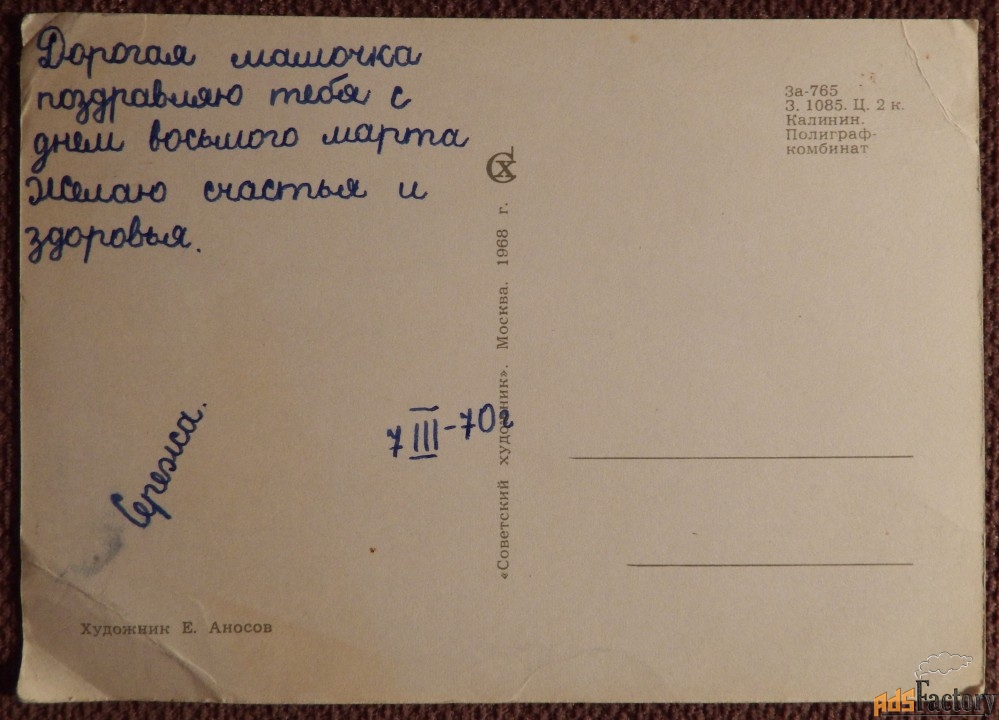 Дорогая мамочка
поздравляю тебя с
днем восьмого марта
Желаю счастья и
здоровья.
Сережа.
7 III-70г
Художник Е. Аносов
«Советский художник». Москва. 1968 г.
СХ
За-765
З. 1085. Ц. 2 к.
Калинин.
Полиграф-
комбинат
AdsFactory